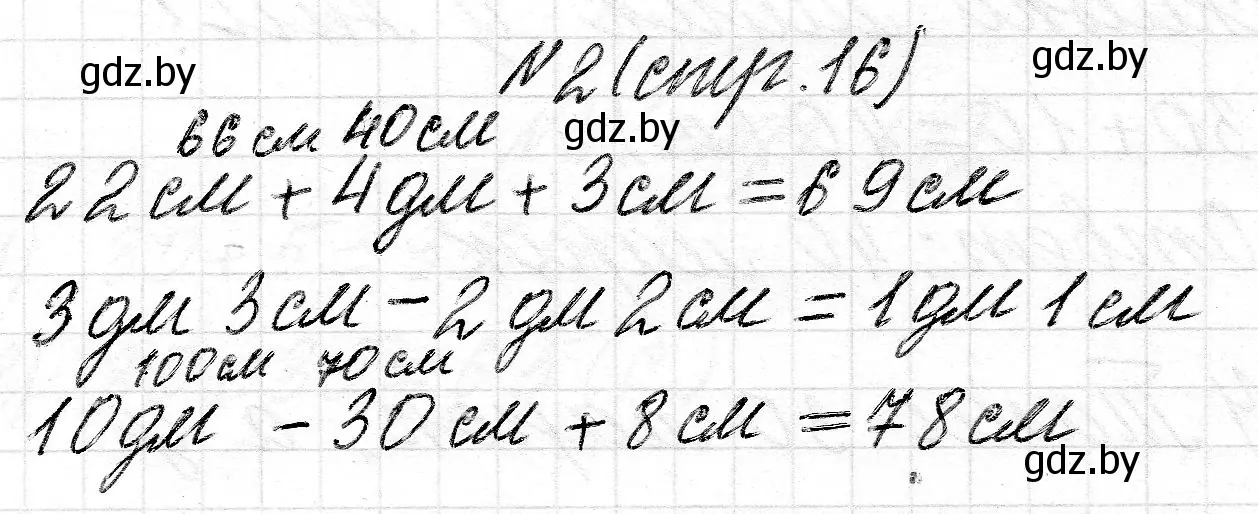 gdz.by
№2(стр.16)
gdz.by
66см 40см
gdz.by
22см + 4дм + 3см = 69см
3дм 3см - 2дм 2см = 1дм 1см
100см 70см
10дм - 30см + 8см = 78см
gdz.by